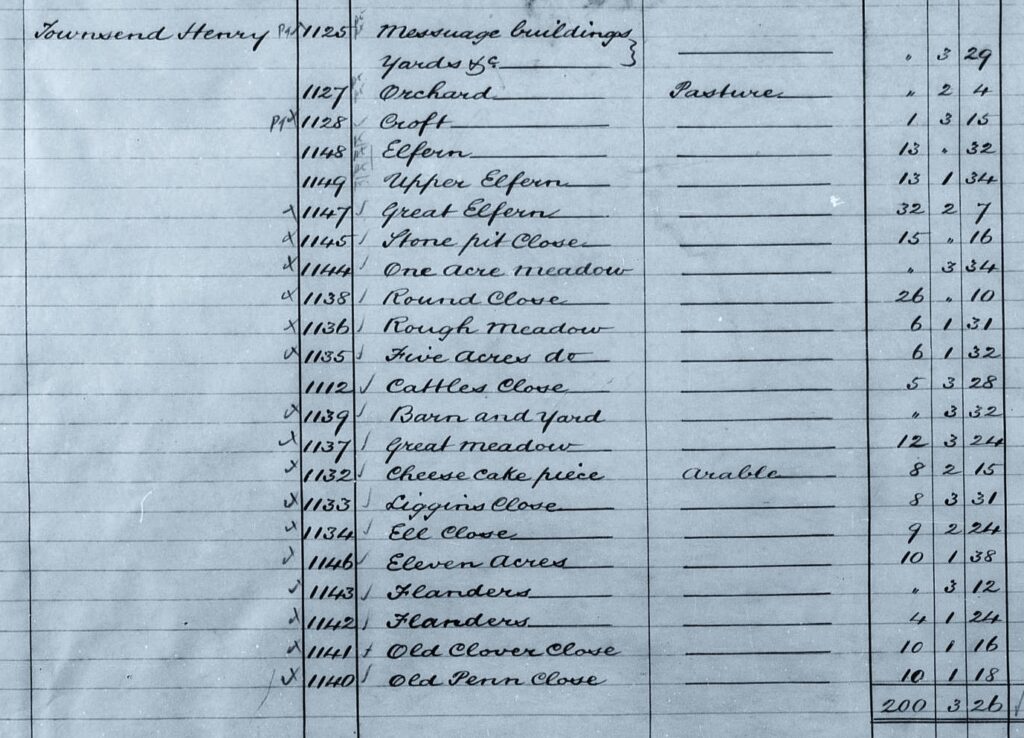 Townsend Henry 1125 Messuage buildings
Yards &c " 3 29
1127 Orchard Pasture " 2 4
1128 Croft 1 3 15
1148 Elfern 13 " 32
1149 Upper Elfern 13 1 34
1147 Great Elfern 32 2 7
1145 Stone pit Close 15 " 16
1144 One Acre Meadow " 3 34
1138 Round Close 26 " 10
1136 Rough Meadow 6 1 31
1135 Five Acres do 6 1 32
1112 Cattles Close 5 3 28
1139 Barn and Yard " 3 32
1137 Great Meadow 12 3 24
1132 Cheese cake piece Arable 8 2 15
1133 Liggins Close 8 3 31
1134 Ell Close 9 2 24
1146 Eleven Acres 10 1 38
1143 Flanders " 3 12
1142 Flanders 4 1 24
1141 Old Clover Close 10 1 16
1140 Old Penn Close 10 1 18
200 3 26